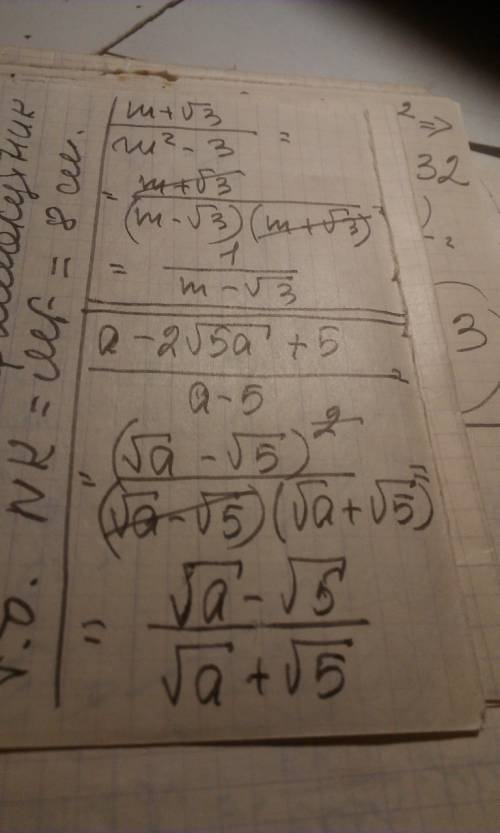 m+√3
m² - 3
=
= m+√3
(m-√3)(m+√3)
= 1
m-√3
a - 2√5a + 5
a-5
=
= (√a - √5)²
(√a-√5)(√a+√5)
=
= √a - √5
√a + √5
NK =
= 8 см.
2 =>
32
3